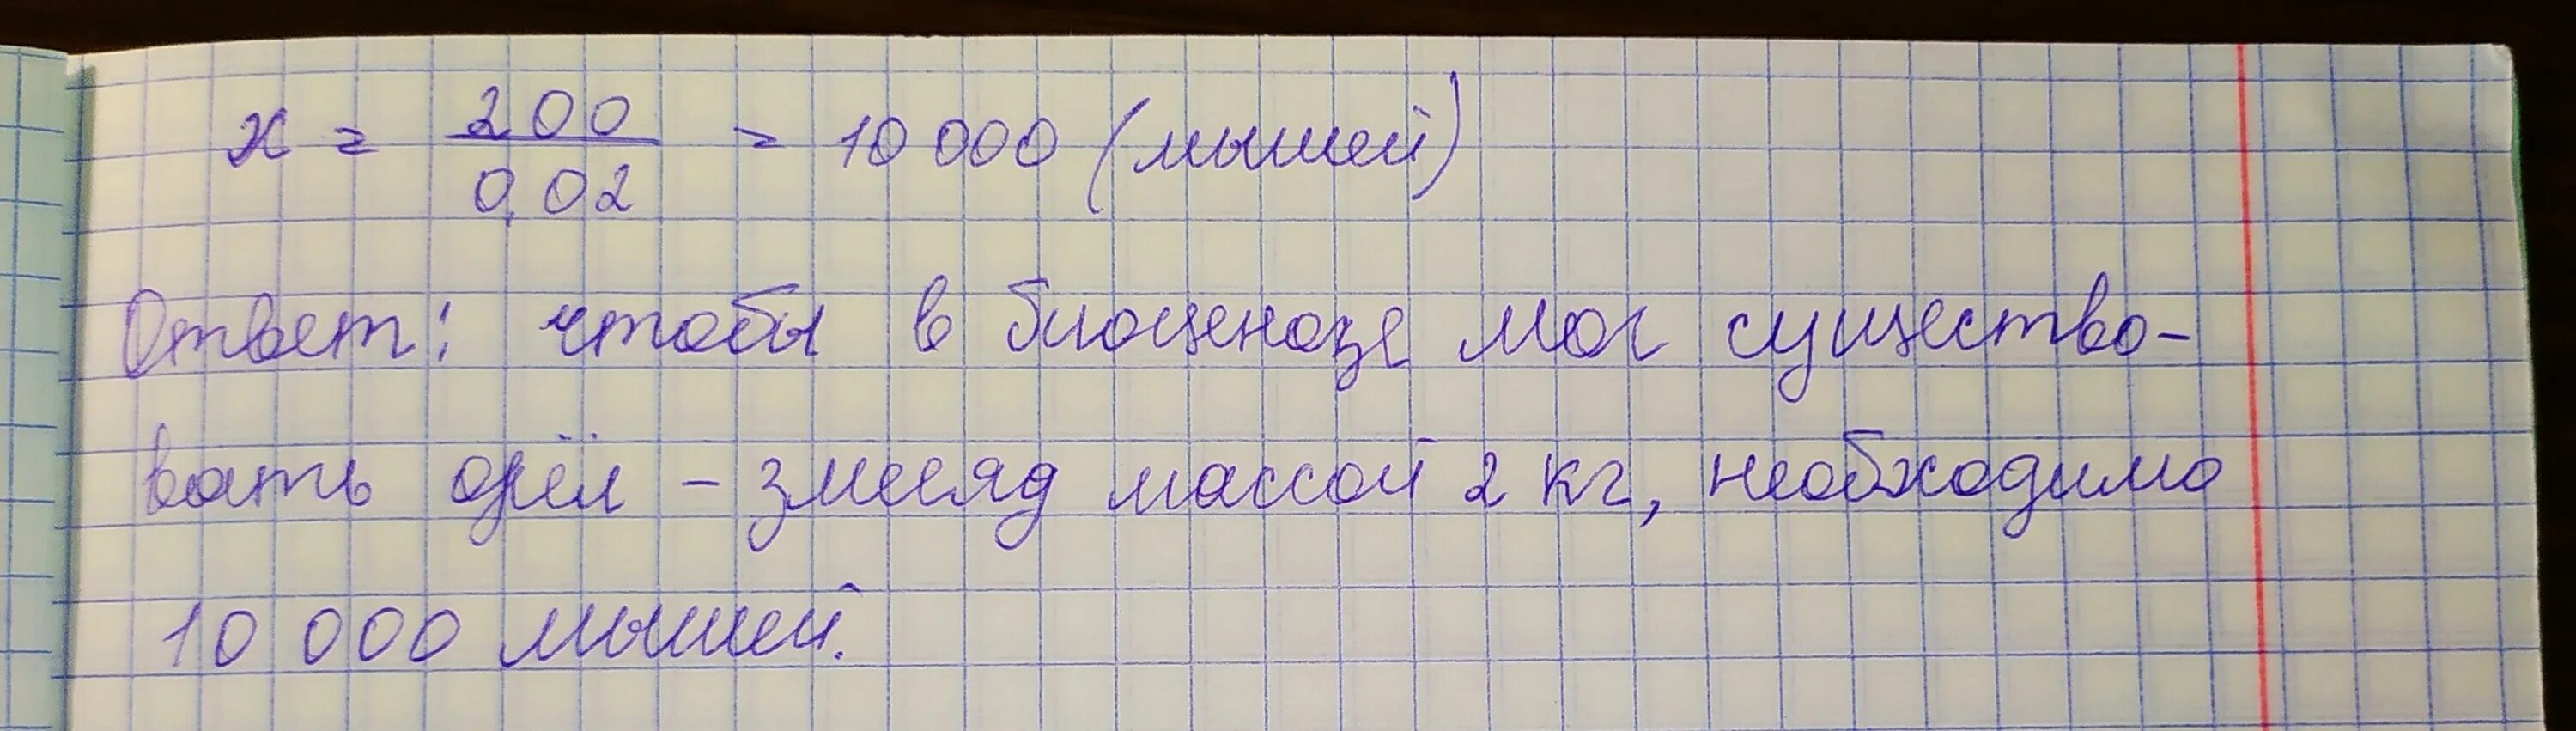 x = 200 / 0,02 = 10 000 (мышей)
Ответ: чтобы в биоценозе мог существо-
вать орёл - змееяд массой 2 кг, необходимо
10 000 мышей.